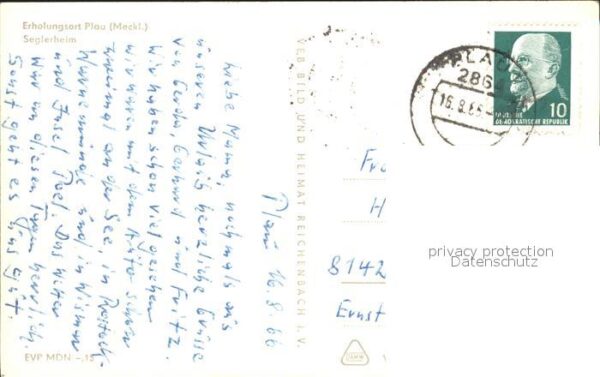 Erholungsort Plau (Meckl.)
Seglerheim
Plau 16.8.66
Liebe Mama, nochmals aus
unserem Urlaub herzliche Grüsse
von Gerda, Gerhard und Fritz.
Wir haben schon viel gesehen
wir waren mit dem Auto schon
zweimal an der See, in Rostock-
Warnemünde und in Wismar
und Insel Poel. Das Wetter
war an diesen Tagen herrlich.
Sonst geht es uns gut.
EVP MDN –,15
VEB BILD UND HEIMAT REICHENBACH I. V.
PLAU
286
16.8.66
10
DEUTSCHE
DEMOKRATISCHE REPUBLIK
Fr
H
8142
Ernst
privacy protection
Datenschutz